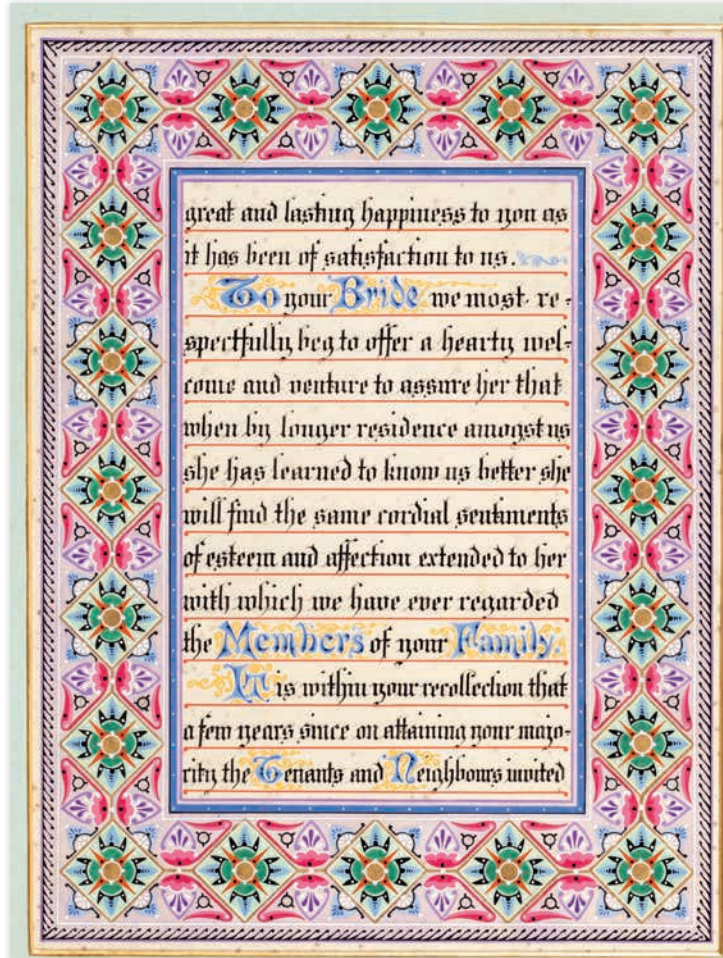 great and lasting happiness to you as
it has been of satisfaction to us.
To your Bride we most re-
spectfully beg to offer a hearty wel-
come and venture to assure her that
when by longer residence amogst us
she has learned to know us better she
will find the same cordial sentiments
of esteem and affection extended to her
with which we have ever regarded
the Members of your Family.
It is within your recollection that
a few years since on attaining your majo-
rity the Tenants and Neighbours invited